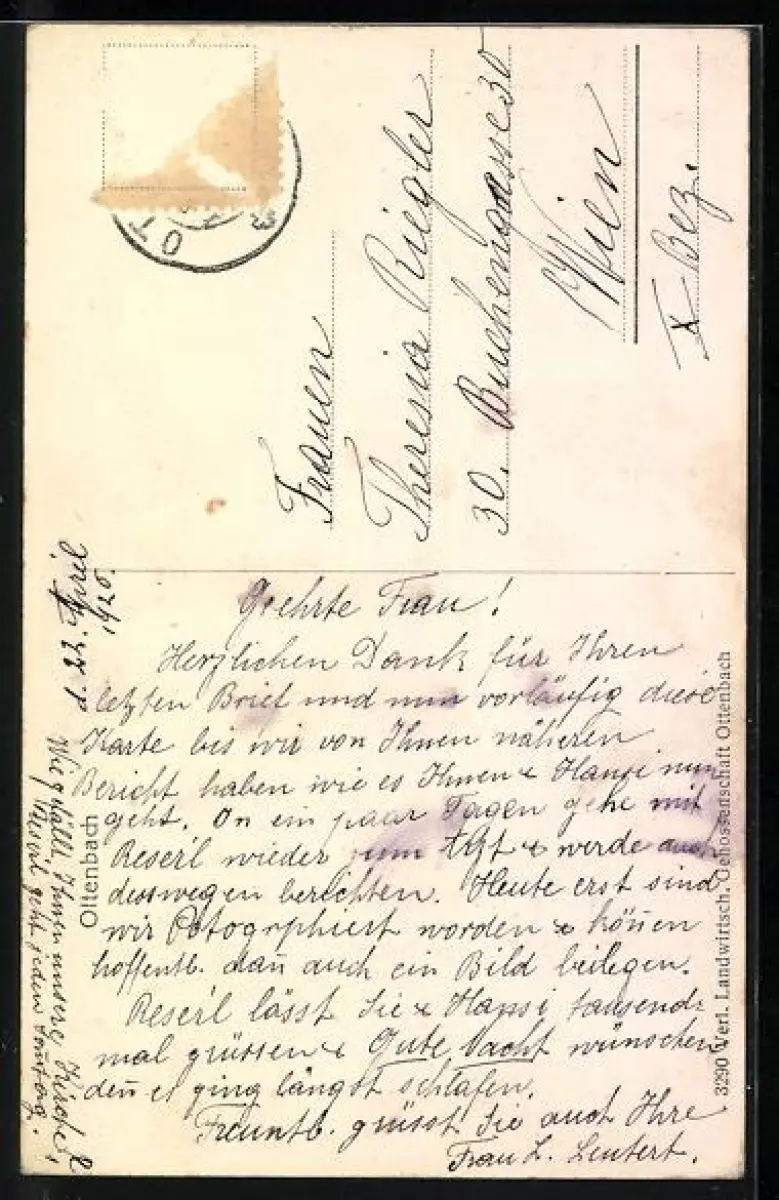 Frauen
Theresia Riegler
30. Buchengasse 30
Wien
X Bez.
OT
d. 22. April
1920.
Geehrte Frau!
Herzlichen Dank für Ihren
letzten Brief und nun vorläufig diese
Karte bis wir von Ihnen näheren
Bericht haben wie es Ihnen & Hansi nun
geht. In ein paar Tagen gehe mit
Reserl wieder zum Arzt & werde auch
desswegen berichten. Heute erst sind
wir Potogrphiert worden & kön̄en
hoffentl. dan̄ auch ein Bild beilegen.
Reserl lässt Sie & Hansi tausend=
mal grüssen & Gute Nacht wünschen
den̄ es ging längst schlafen.
Freuntl. grüsst Sie auch Ihre
Frau L. Leutert.
Wie gefällt Ihnen unsere Kirche,
Reserl geht jeden Son̄tag.
Ottenbach
3290 Verl. Landwirtsch. Genossenschaft Ottenbach